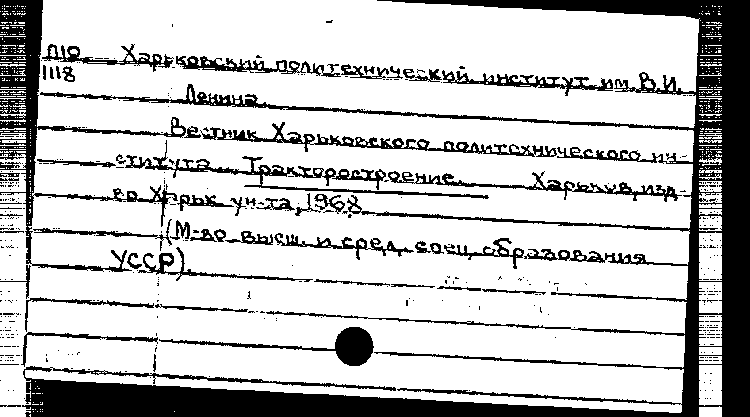 П10 Харьковский политехнический институт им. В.И.
1118
Ленина.
Вестник Харьковского политехнического ин-
ститута. Тракторостроение. Харьков, изд-
во Харьк. ун-та, 1968.
(М-во высш. и сред. спец. образования
УССР).